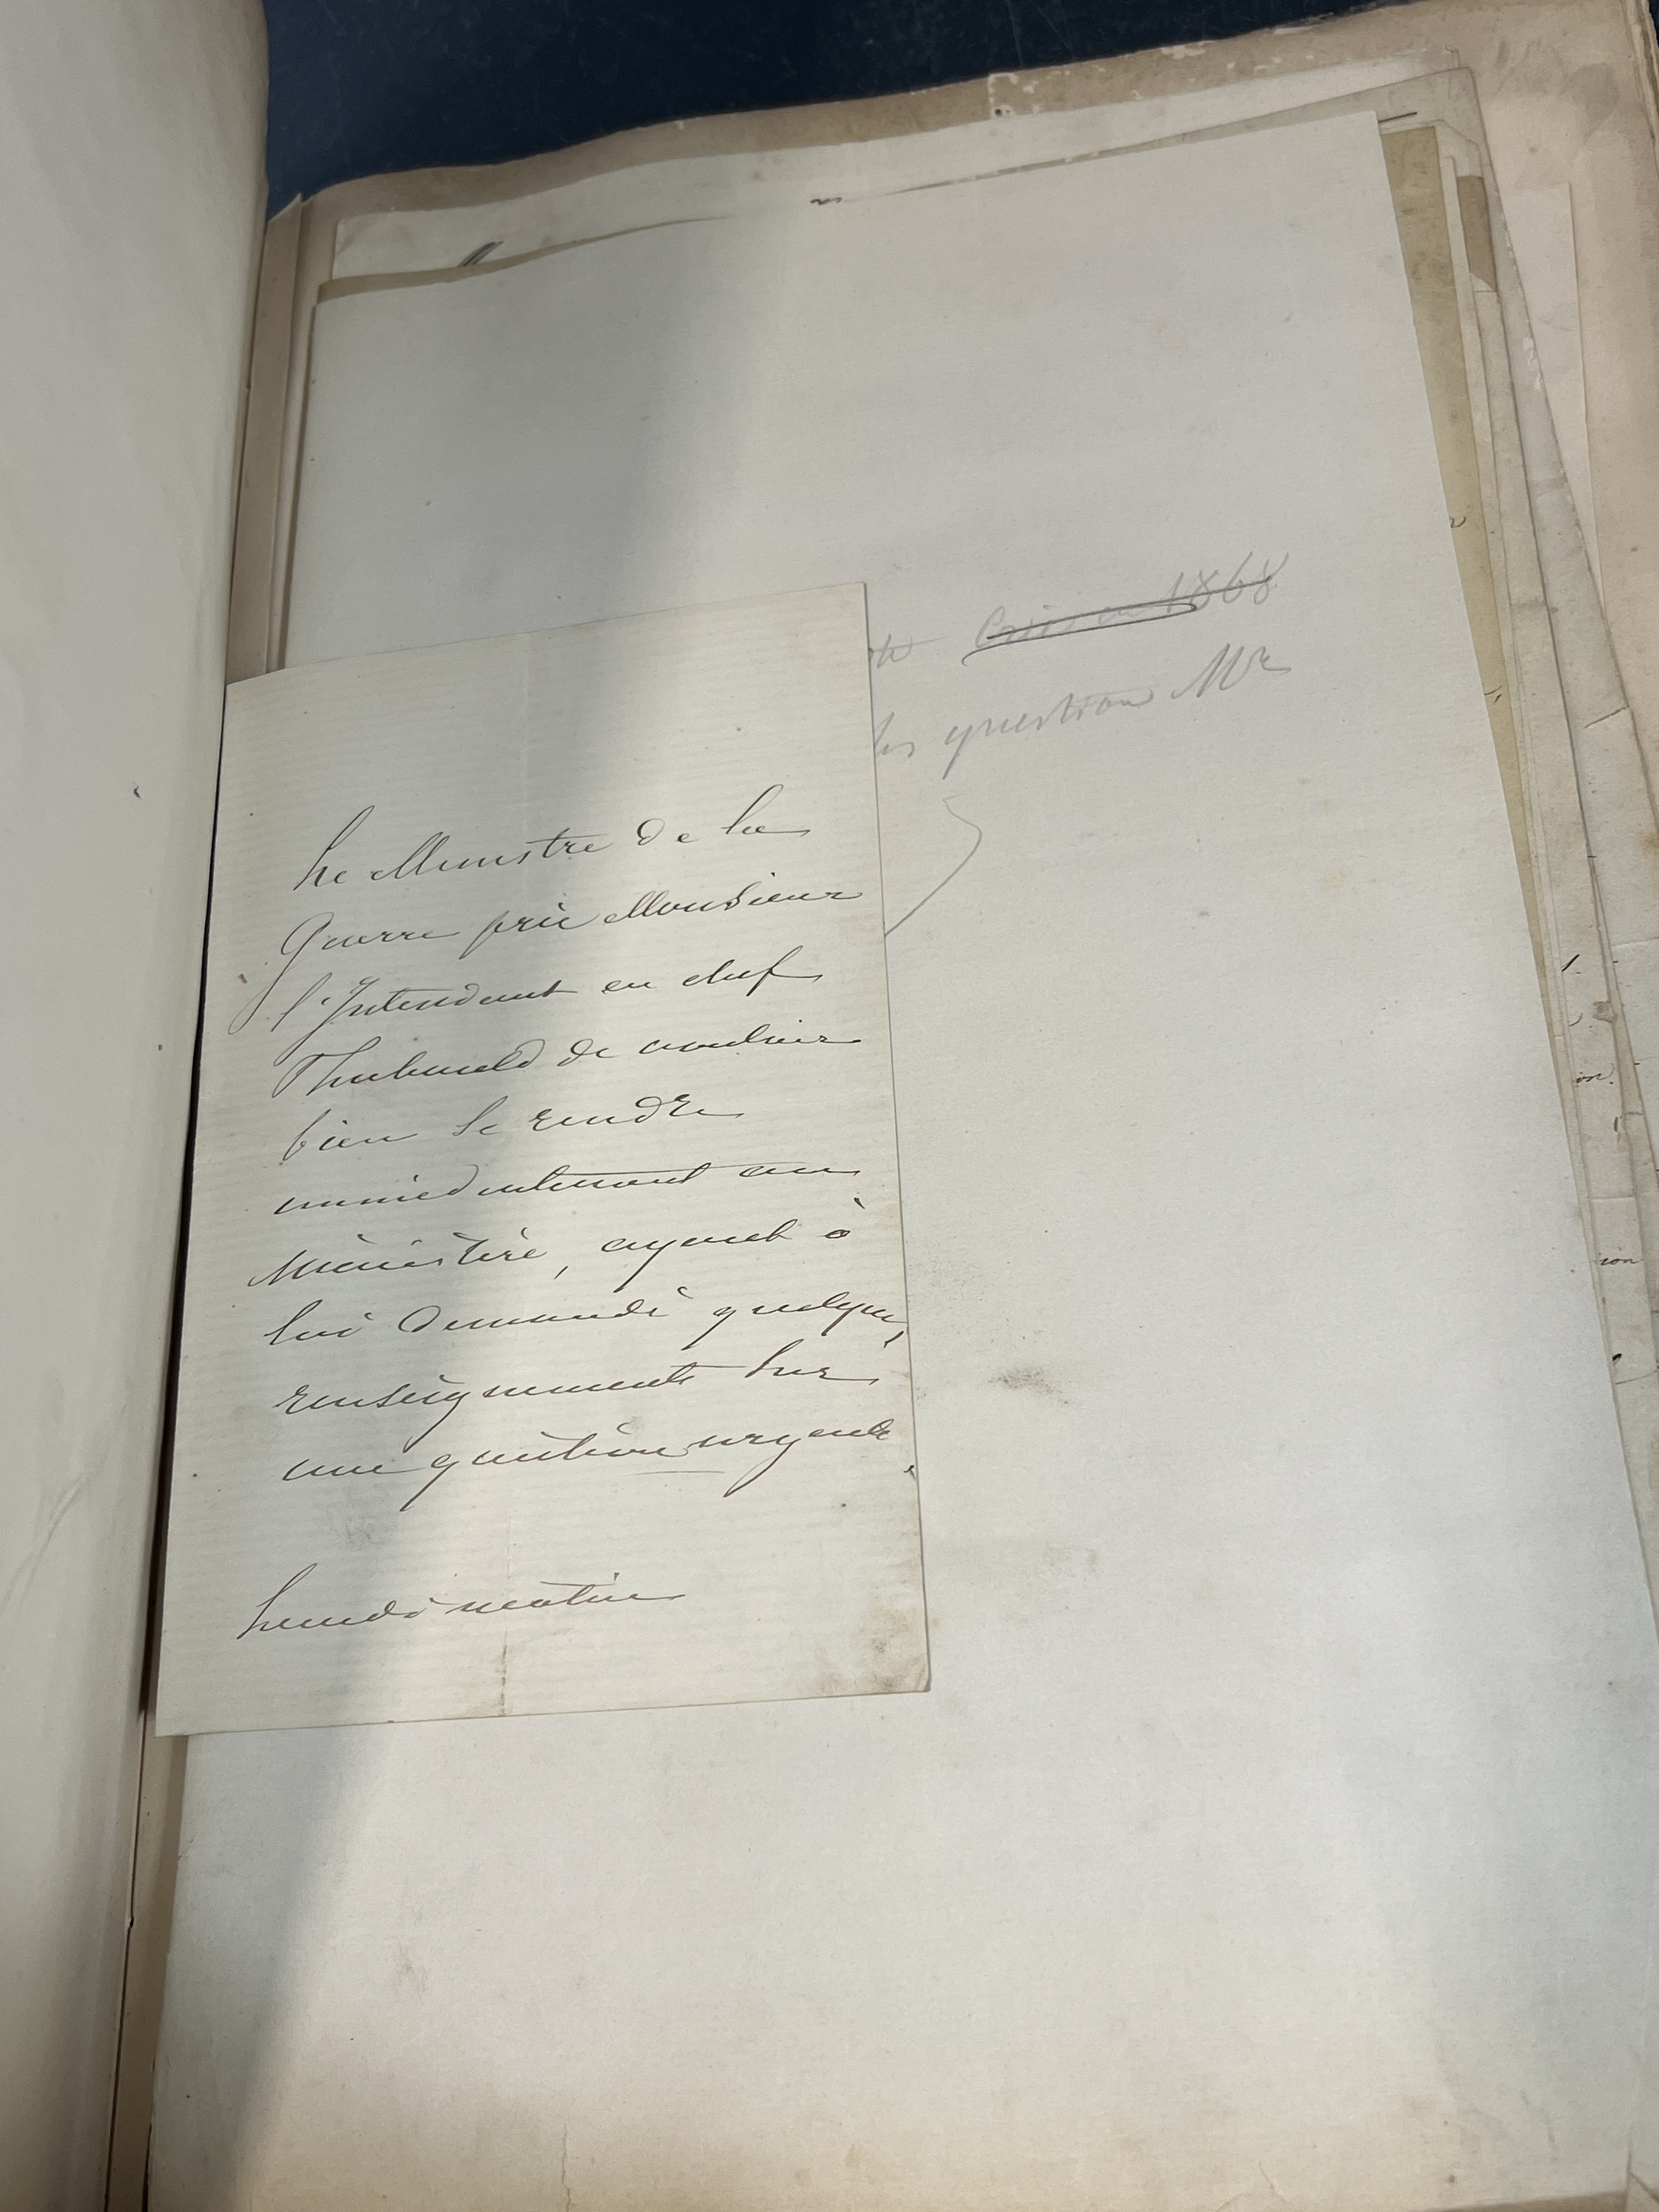 Crise en 1868
les question Mr
Le Ministre de la
Guerre prie Monsieur
l'Intendant en chef
de vouloir
bien se rendre
immediatement au
Ministère, ayant à
lui demandé quelques
renseignements sur
une question urgente.
lundi matin